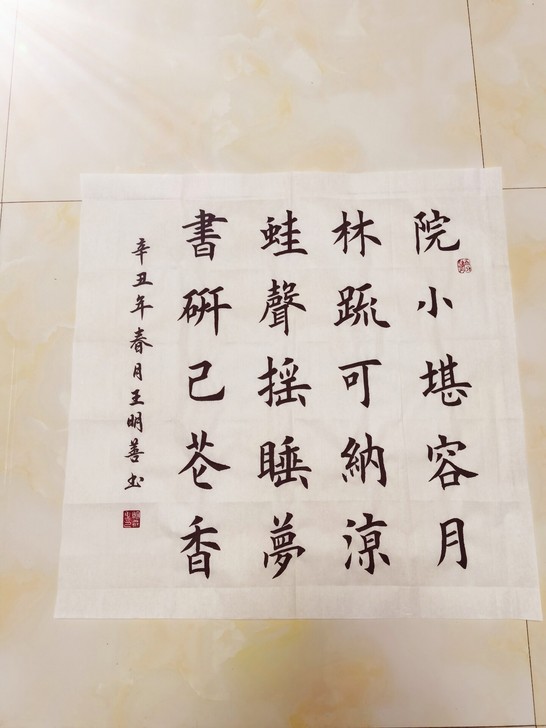 院小堪容月
林疏可納涼
蛙聲搖睡夢
書硏己苍香
辛丑年春月王明善书